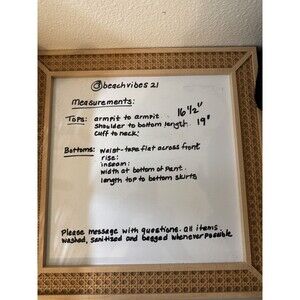 @beachvibes21
Measurements:
Tops: armpit to armpit. 16 1/2"
shoulder to bottom length. 19"
cuff to neck:
Bottoms: waist-tape flat across front
rise:
inseam:
width at bottom of pant.
length top to bottom skirts
Please message with questions. all items
washed, sanitized and bagged whenever possible